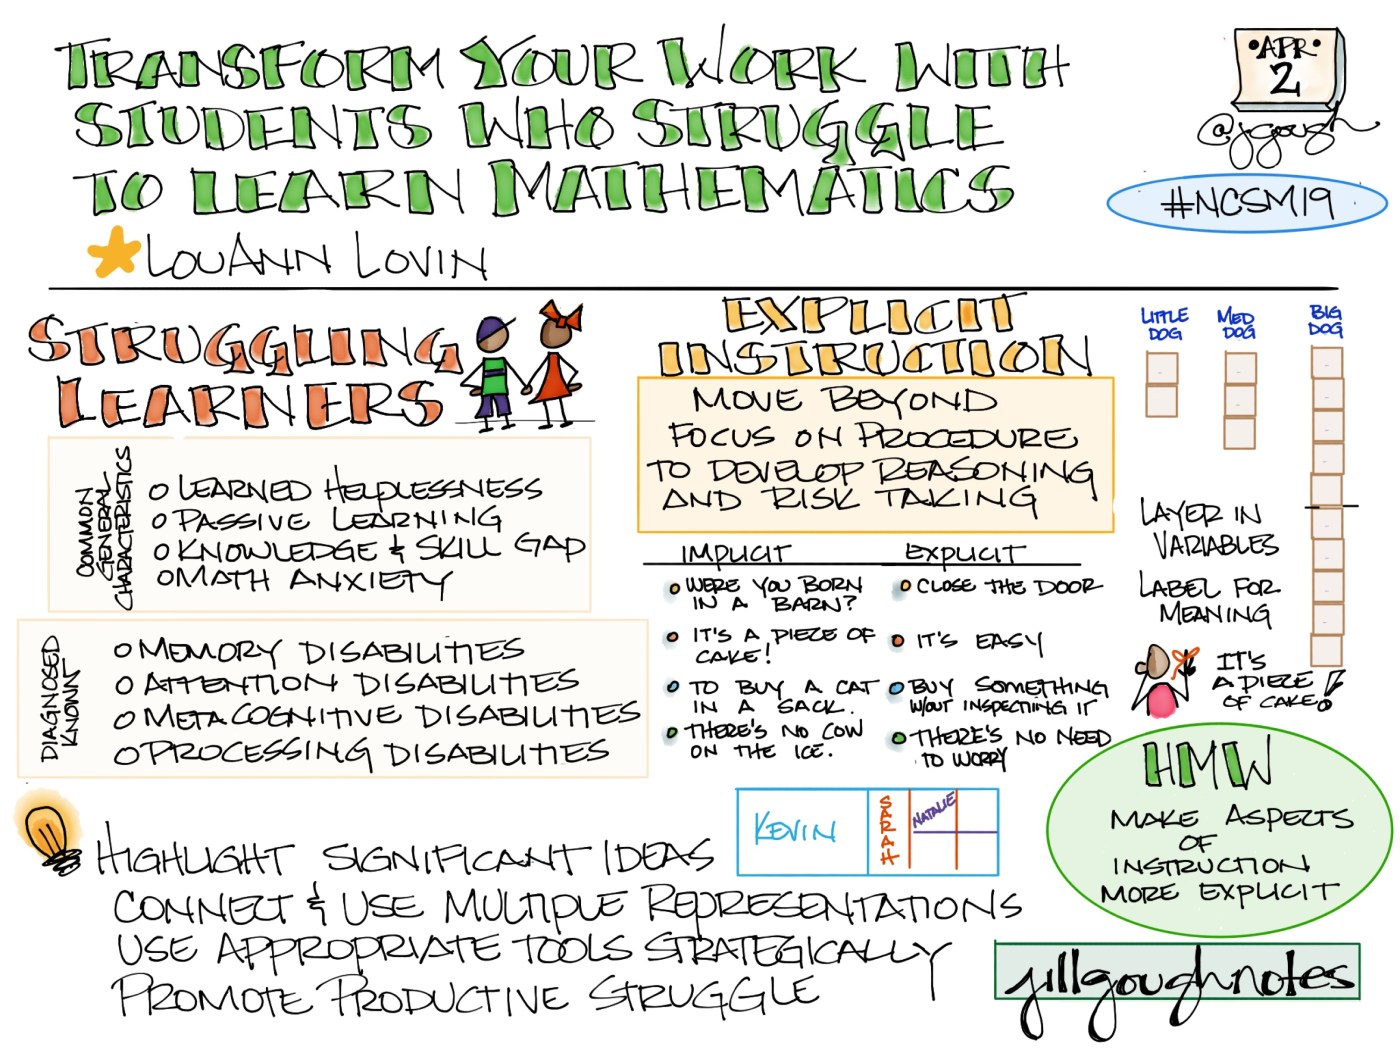 TRANSFORM YOUR WORK WITH
STUDENTS WHO STRUGGLE
TO LEARN MATHEMATICS
LOUANN LOVIN
•APR•
2
@jgough
#NCSM19
STRUGGLING
LEARNERS
COMMON
GENERAL
CHARACTERISTICS
O LEARNED HELPLESSNESS
O PASSIVE LEARNING
O KNOWLEDGE & SKILL GAP
O MATH ANXIETY
DIAGNOSED
KNOWN
O MEMORY DISABILITIES
O ATTENTION DISABILITIES
O METACOGNITIVE DISABILITIES
O PROCESSING DISABILITIES
EXPLICIT
INSTRUCTION
MOVE BEYOND
FOCUS ON PROCEDURE
TO DEVELOP REASONING
AND RISK TAKING
IMPLICIT
WERE YOU BORN
IN A BARN?
IT'S A PIECE OF
CAKE!
TO BUY A CAT
IN A SACK.
THERE'S NO COW
ON THE ICE.
EXPLICIT
CLOSE THE DOOR
IT'S EASY
BUY SOMETHING
W/OUT INSPECTING IT
THERE'S NO NEED
TO WORRY
LITTLE
DOG
MED
DOG
BIG
DOG
LAYER IN
VARIABLES
LABEL FOR
MEANING
IT'S
A PIECE
OF CAKE!
HMW
MAKE ASPECTS
OF
INSTRUCTION
MORE EXPLICIT
KEVIN
SARAH
NATALIE
HIGHLIGHT SIGNIFICANT IDEAS
CONNECT & USE MULTIPLE REPRESENTATIONS
USE APPROPRIATE TOOLS STRATEGICALLY
PROMOTE PRODUCTIVE STRUGGLE
jillgoughnotes